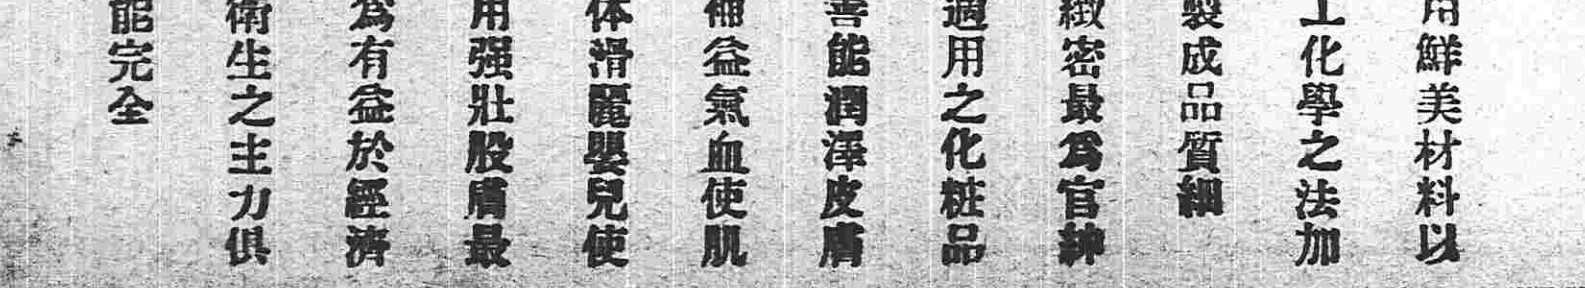 用鮮美材料以
工化學之法加
製成品質細
緻密最爲官紳
適用之化粧品
善能潤澤皮膚
補益氣血使肌
体滑麗嬰兒使
用强壯股膚最
爲有益於經濟
衛生之主力俱
能完全